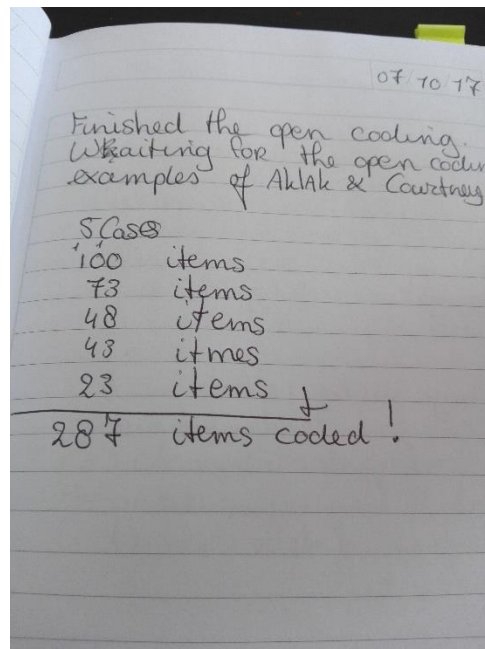 07 10 17
Finished the open coding.
Waiting for the open codin
examples of AklAk & Courtney
5 Cases
100 items
73 items
48 items
43 itmes
23 items +
287 items coded!